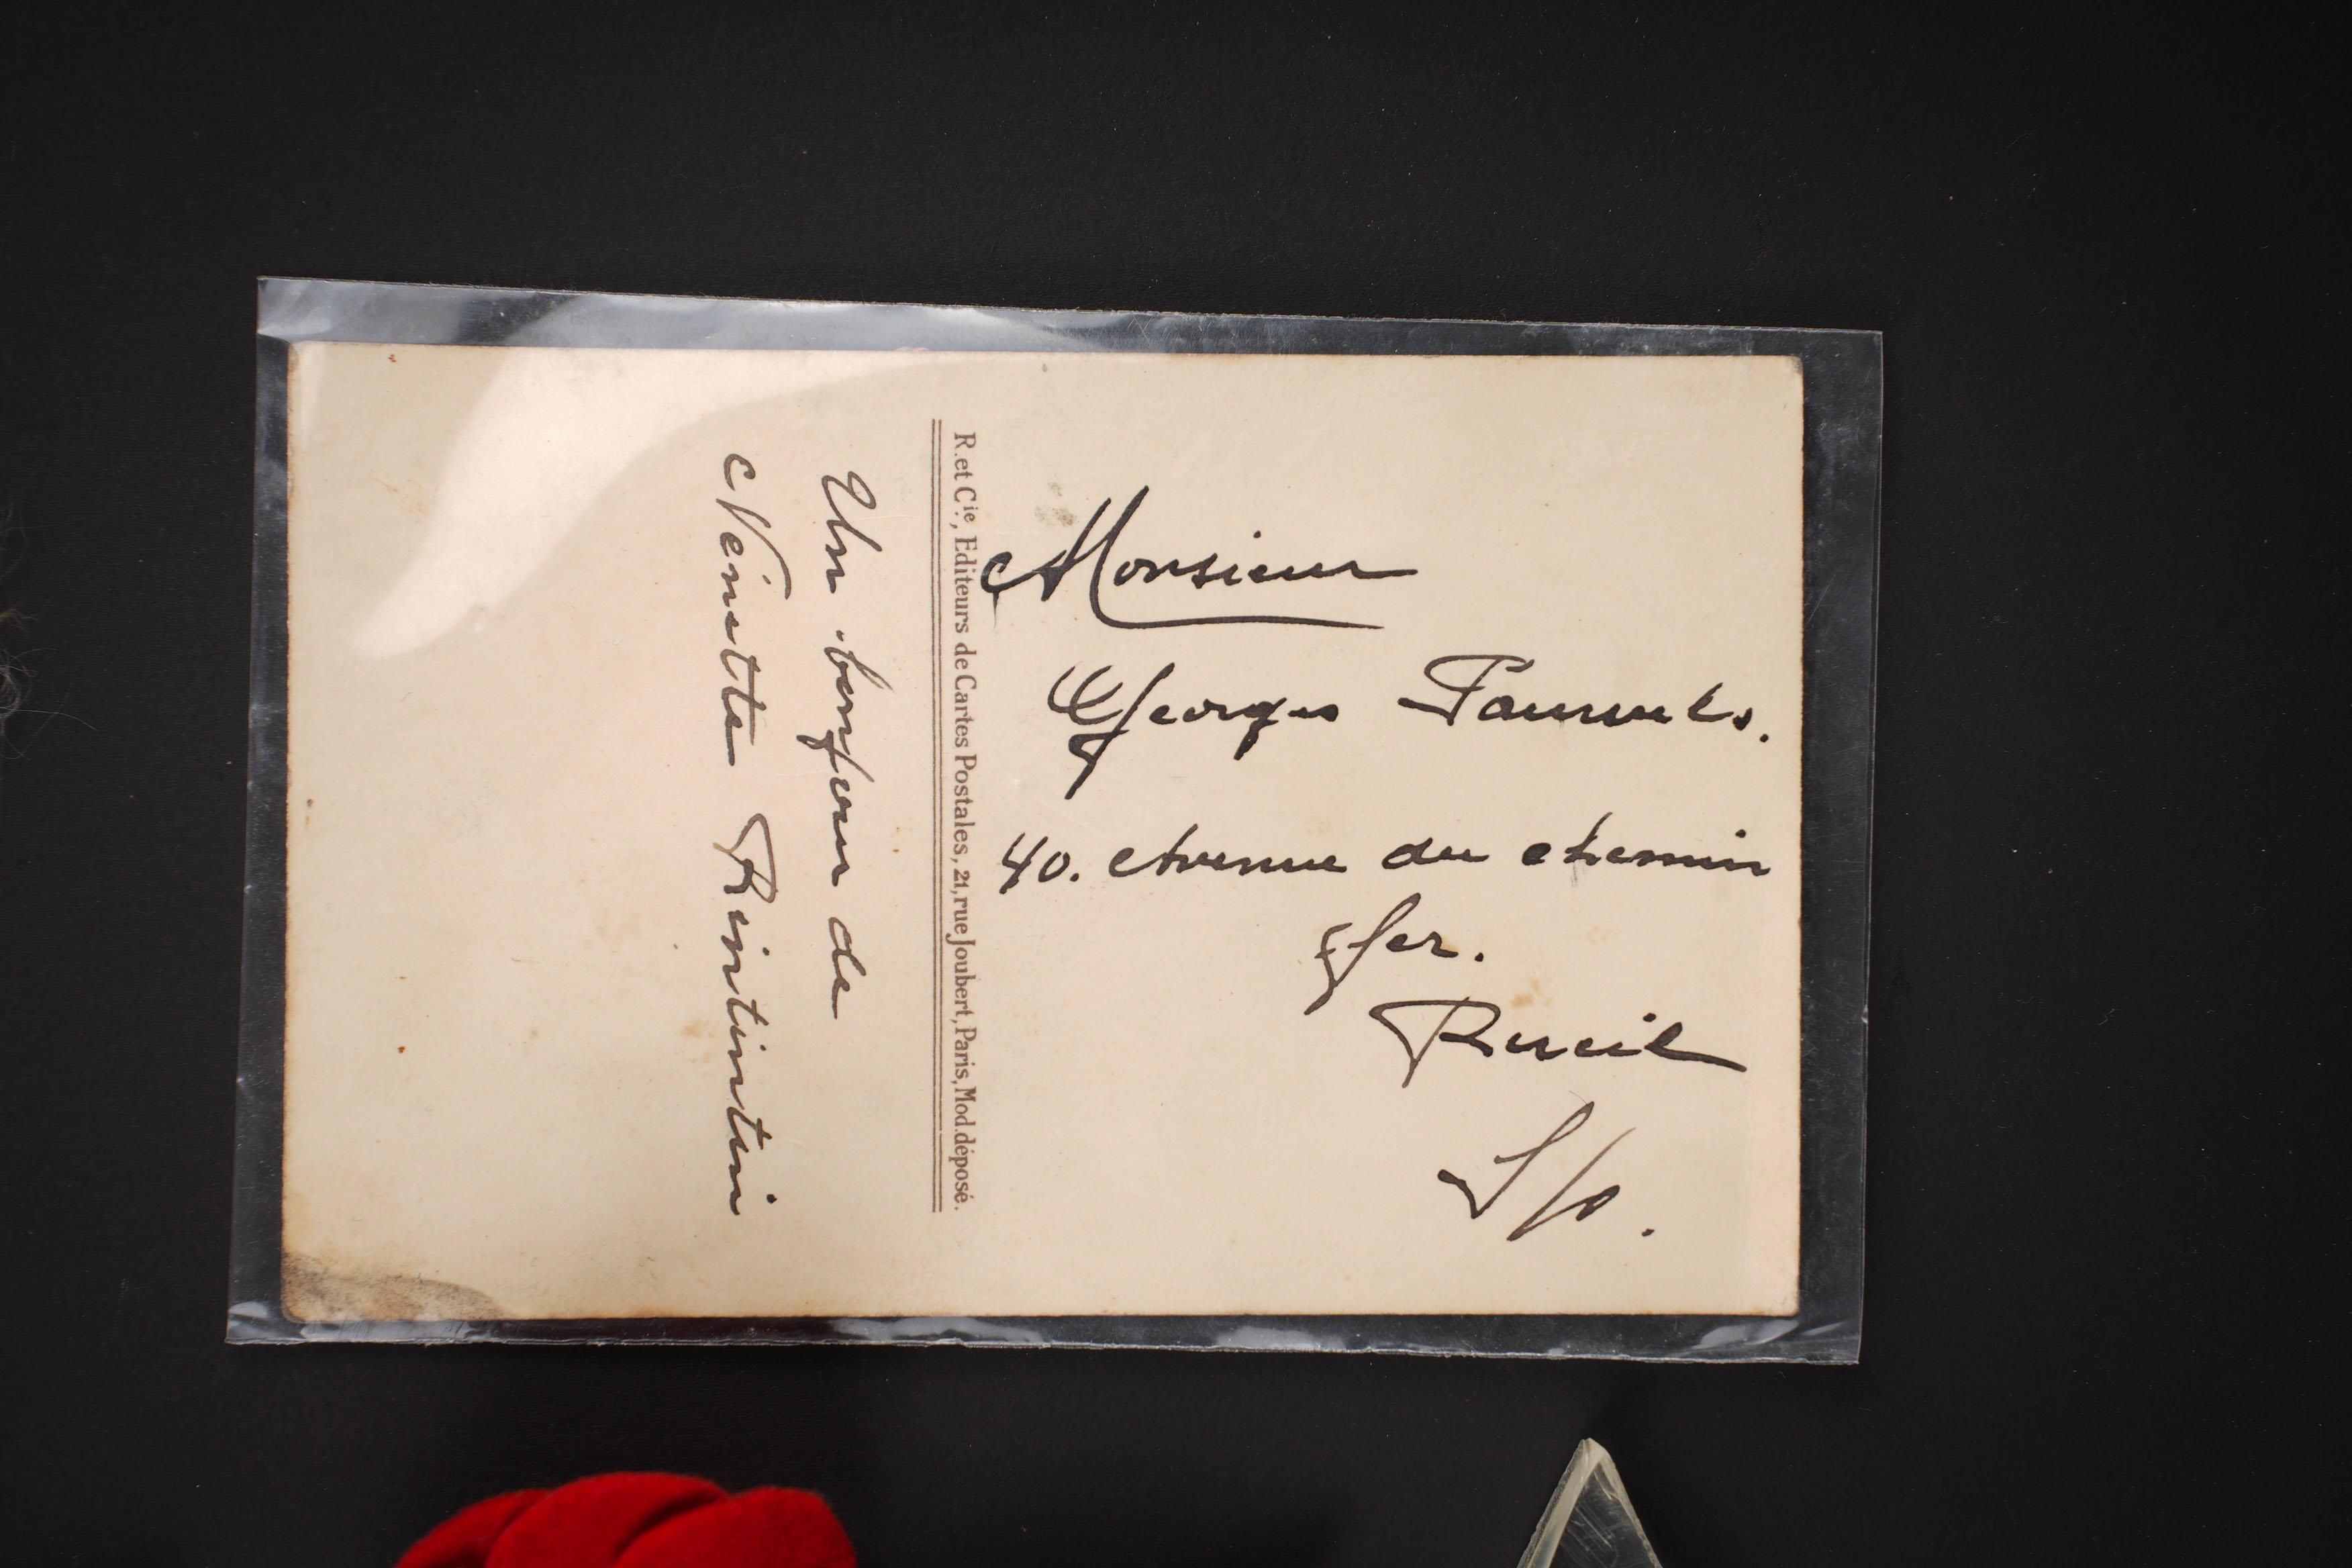 Un bonjour de
Nénette Rintintin
R. et Cie, Editeurs de Cartes Postales, 21, rue Joubert, Paris, Mod. déposé.
Monsieur
Georges
40. Avenue du chemin
fer.
Rueil
S/o.